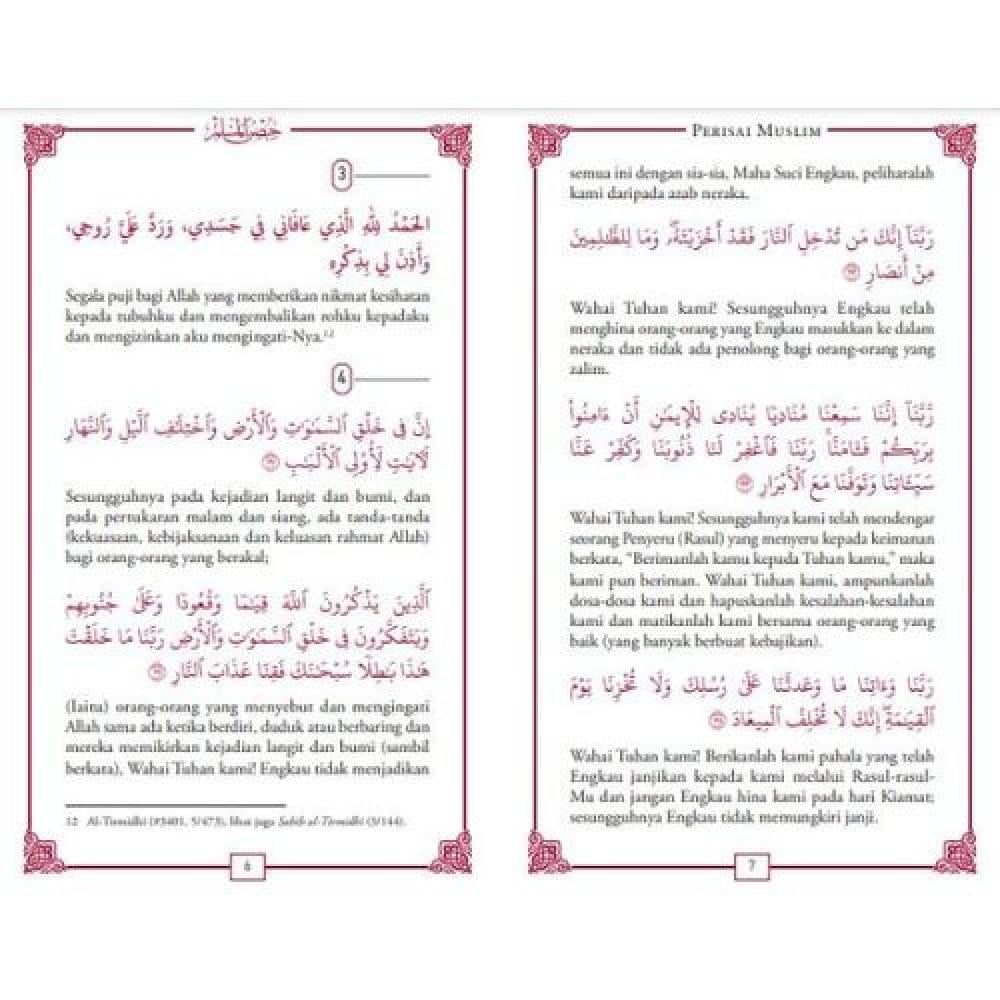 حصن المسلم
3
الحَمْدُ لِلَّهِ الَّذِي عَافَانِي فِي جَسَدِي، وَرَدَّ عَلَيَّ رُوحِي،
وَأَذِنَ لِي بِذِكْرِهِ
Segala puji bagi Allah yang memberikan nikmat kesihatan
kepada tubuhku dan mengembalikan rohku kepadaku
dan mengizinkan aku mengingati-Nya.¹²
4
إِنَّ فِي خَلْقِ ٱلسَّمَٰوَٰتِ وَٱلْأَرْضِ وَٱخْتِلَٰفِ ٱلَّيْلِ وَٱلنَّهَارِ
لَءَايَٰتٍ لِّأُو۟لِى ٱلْأَلْبَٰبِ
Sesungguhnya pada kejadian langit dan bumi, dan
pada pertukaran malam dan siang, ada tanda-tanda
(kekuasaan, kebijaksanaan dan keluasan rahmat Allah)
bagi orang-orang yang berakal;
ٱلَّذِينَ يَذْكُرُونَ ٱللَّهَ قِيَٰمًا وَقُعُودًا وَعَلَىٰ جُنُوبِهِمْ
وَيَتَفَكَّرُونَ فِي خَلْقِ ٱلسَّمَٰوَٰتِ وَٱلْأَرْضِ رَبَّنَا مَا خَلَقْتَ
هَٰذَا بَٰطِلًا سُبْحَٰنَكَ فَقِنَا عَذَابَ ٱلنَّارِ
(Iaitu) orang-orang yang menyebut dan mengingati
Allah sama ada ketika berdiri, duduk atau berbaring dan
mereka memikirkan kejadian langit dan bumi (sambil
berkata), Wahai Tuhan kami! Engkau tidak menjadikan
12 Al-Tirmidhi (#3401, 5/473), lihat juga Sahih al-Tirmidhi (3/144).
6
PERISAI MUSLIM
semua ini dengan sia-sia, Maha Suci Engkau, peliharalah
kami daripada azab neraka.
رَبَّنَآ إِنَّكَ مَن تُدْخِلِ ٱلنَّارَ فَقَدْ أَخْزَيْتَهُۥ وَمَا لِلظَّٰلِمِينَ
مِنْ أَنصَارٍ
Wahai Tuhan kami! Sesungguhnya Engkau telah
menghina orang-orang yang Engkau masukkan ke dalam
neraka dan tidak ada penolong bagi orang-orang yang
zalim.
رَّبَّنَآ إِنَّنَا سَمِعْنَا مُنَادِيًا يُنَادِى لِلْإِيمَٰنِ أَنْ ءَامِنُوا۟
بِرَبِّكُمْ فَـَٔامَنَّا رَبَّنَا فَٱغْفِرْ لَنَا ذُنُوبَنَا وَكَفِّرْ عَنَّا
سَيِّـَٔاتِنَا وَتَوَفَّنَا مَعَ ٱلْأَبْرَارِ
Wahai Tuhan kami! Sesungguhnya kami telah mendengar
seorang Penyeru (Rasul) yang menyeru kepada keimanan
berkata, “Berimanlah kamu kepada Tuhan kamu,” maka
kami pun beriman. Wahai Tuhan kami, ampunkanlah
dosa-dosa kami dan hapuskanlah kesalahan-kesalahan
kami dan matikanlah kami bersama orang-orang yang
baik (yang banyak berbuat kebajikan).
رَبَّنَا وَءَاتِنَا مَا وَعَدتَّنَا عَلَىٰ رُسُلِكَ وَلَا تُخْزِنَا يَوْمَ
ٱلْقِيَٰمَةِ إِنَّكَ لَا تُخْلِفُ ٱلْمِيعَادَ
Wahai Tuhan kami! Berikanlah kami pahala yang telah
Engkau janjikan kepada kami melalui Rasul-rasul-
Mu dan jangan Engkau hina kami pada hari Kiamat;
sesungguhnya Engkau tidak memungkiri janji.
7